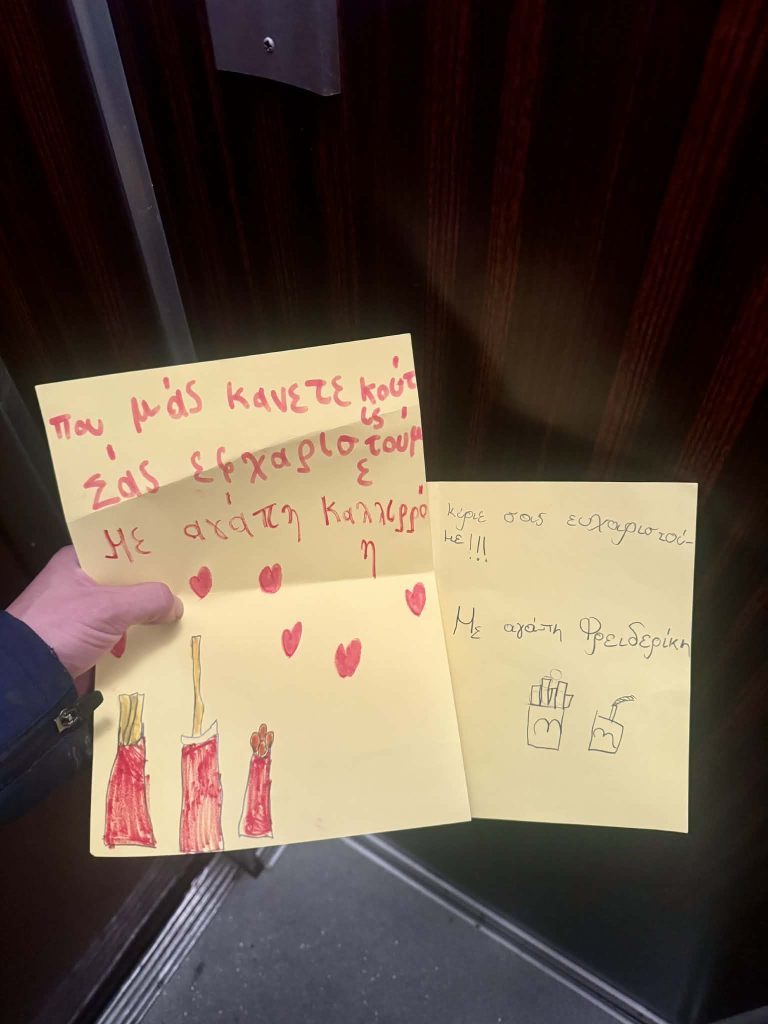 που μάς κανετε κούτ
ις
Σάς εφχαριστούμ
ε
Με αγάπη Καλλιρρό
η
κύριε σας ευχαριστού-
με!!!
Με αγάπη Φρειδερίκη
m
m